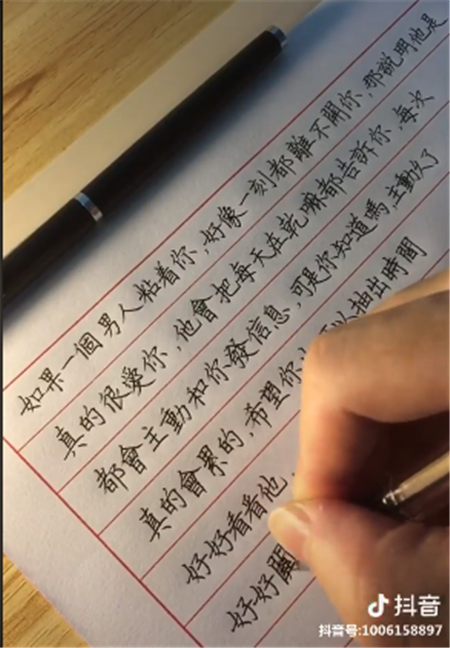 如果一個男人粘着你，好像一刻都離不開你，那說明他是
真的很愛你，他會把每天在乾嘛都告訴你，每次
都會主動和你發信息，可是你知道嗎，主動久了
真的會累的，希望你 以抽出時間
好好看看他，
好好關
抖音
抖音号:1006158897